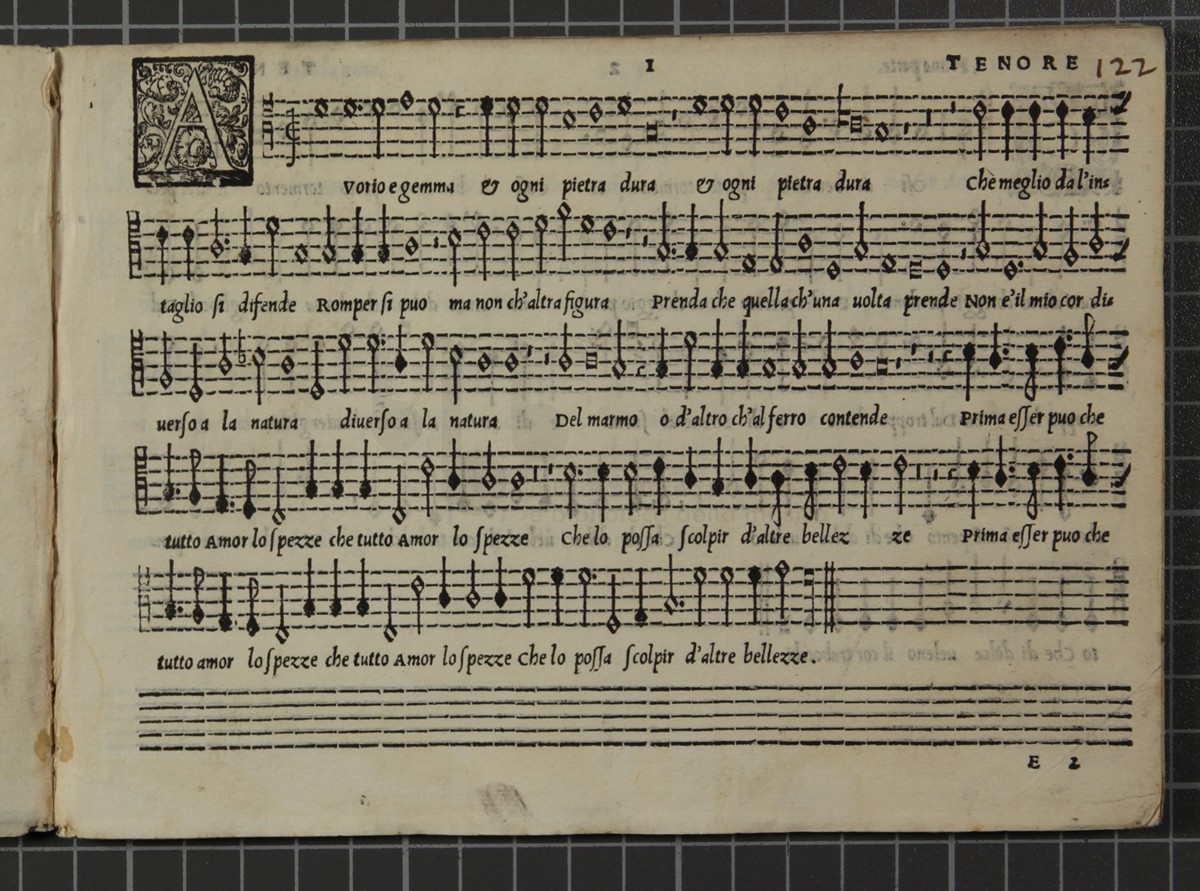 1 TENORE 122
A
Vorio e gemma & ogni pietra dura & ogni pietra dura Che meglio da l'in=
taglio si difende Romper si puo ma non ch'altra figura Prenda che quella ch'una uolta prende Non e'il mio cor di=
uerso a la natura diuerso a la natura Del marmo o d'altro ch'al ferro contende Prima eſſer puo che
tutto Amor lo ſpezze che tutto Amor lo ſpezze Che lo poſſa ſcolpir d'altre bellez ze Prima eſſer puo che
tutto amor lo ſpezze che tutto Amor lo ſpezze Che lo poſſa ſcolpir d'altre bellezze.
E 2